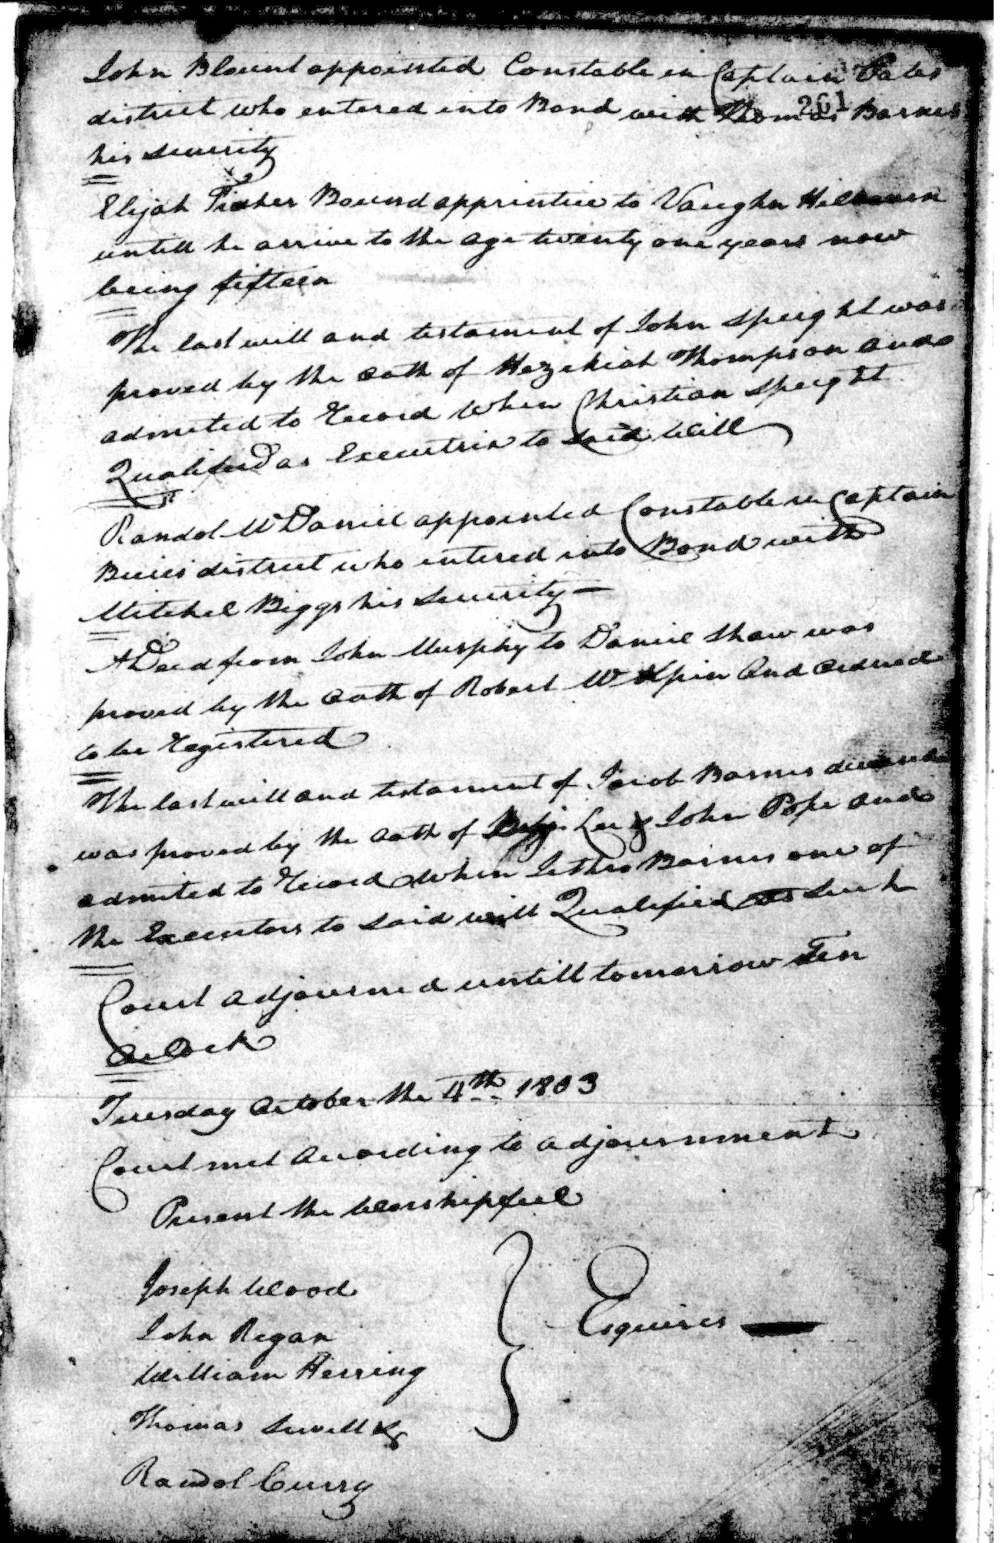 John Blount appointed Constable in Captain
261
district who entered into Bond with Thomas Barnes
his security
Elijah Bound apprintice to Vaughn
untill he arrive to the age twenty one years now
being fifteen
The last will and testament of John Speight was
proved by the oath of Hezekiah Thompson and
admited to Record When Christian Speight
Qualified as Executrix to said Will
Randol McDaniel appointed Constable in Captain
district who entered into Bond with
Mitchel Biggs his security —
A Deed from John Murphy to Daniel Shaw was
proved by the oath of Robert and ordered
to be Registered
The last will and testament of Jacob Barnes
was proved by the oath of Lee & John Pope and
admited to Record When Jethro Barnes one of
the Executors to said will Qualified as such
Court adjourned untill tomorrow Ten
Oclock
Tuesday October the 4th 1803
Court met According to adjournment
Present the Worshipfull
Joseph Wood
John Regan
Esquires —
William Herring
Thomas Sewell &
Randol Curry